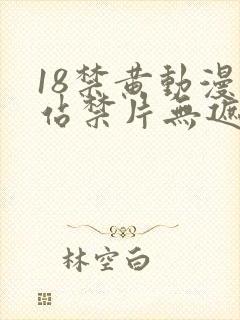 18禁黄動漫
佔禁片無遮
林空白